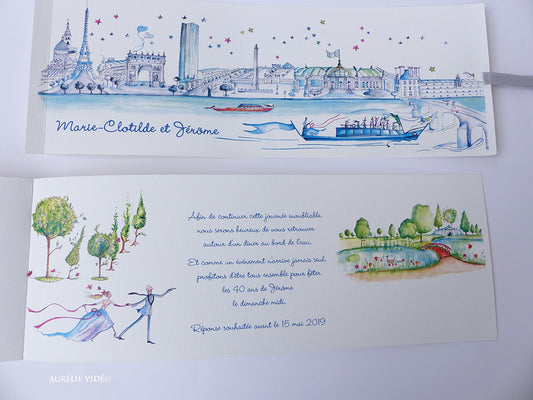 Marie-Clotilde et Jérôme
Afin de continuer cette journée inoubliable,
nous serons heureux de vous retrouver
autour d'un diner au bord de l'eau.
Et comme un événement n'arrive jamais seul,
profitons d'être tous ensemble pour fêter
les 40 ans de Jérôme
le dimanche midi.
Réponse souhaitée avant le 15 mai 2019
AURÉLIE VIDÉ©